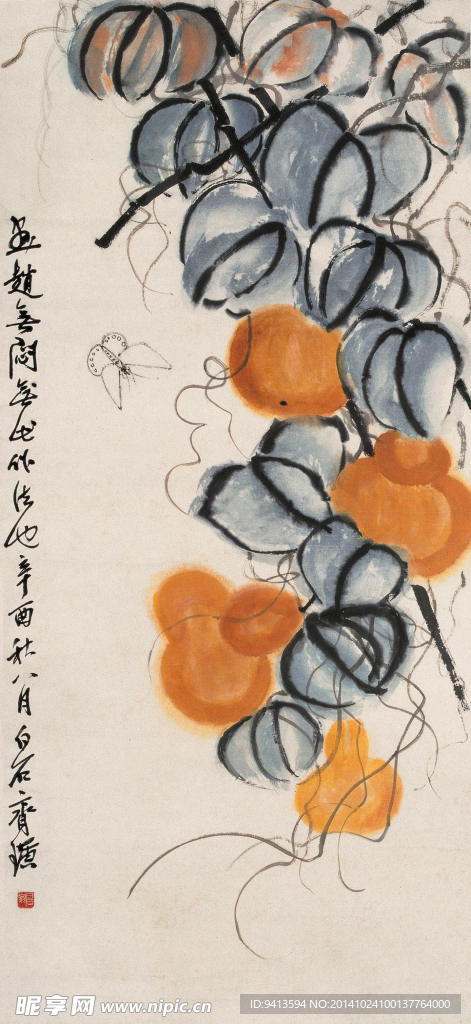 畫趙無悶無此作法也辛酉秋八月白石齊璜
昵享网 www.nipic.cn
ID:9413594 NO:20141024100137764000